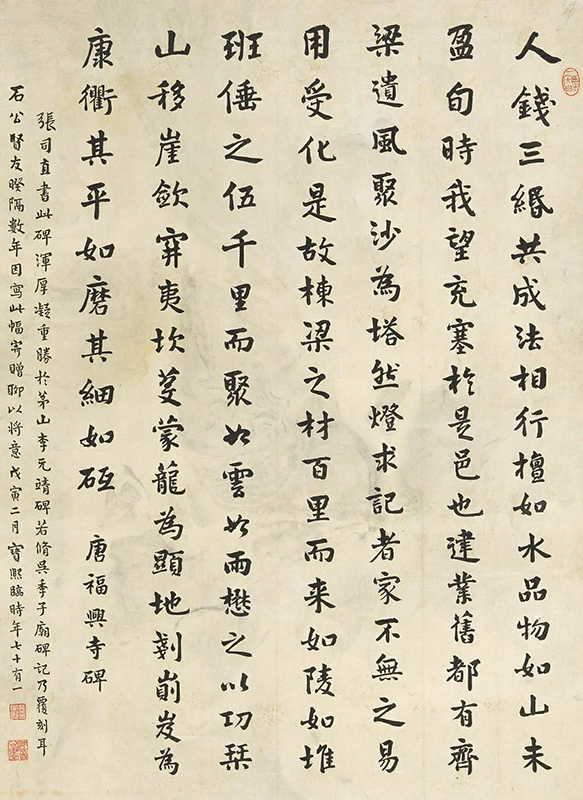 人錢三緡共成法相行檀如水品物如山未
盈旬時我望充塞於是邑也建業舊都有齊
梁遺風聚沙為塔然燈求記者家不無之易
用受化是故棟梁之材百里而来如陵如堆
班倕之伍千里而聚如雲如雨懋之以功栞
山移崖歛穽夷坎芟蒙蘢為顯地剗崩岌為
康衢其平如磨其細如砥
唐福興寺碑
張司直書此碑渾厚凝重勝於茅山李元靖碑若脩吳季子廟碑記乃覆刻耳
石公賢友暌隔數年因寫此幅寄贈聊以將意戊寅二月寶熙臨時年七十有一